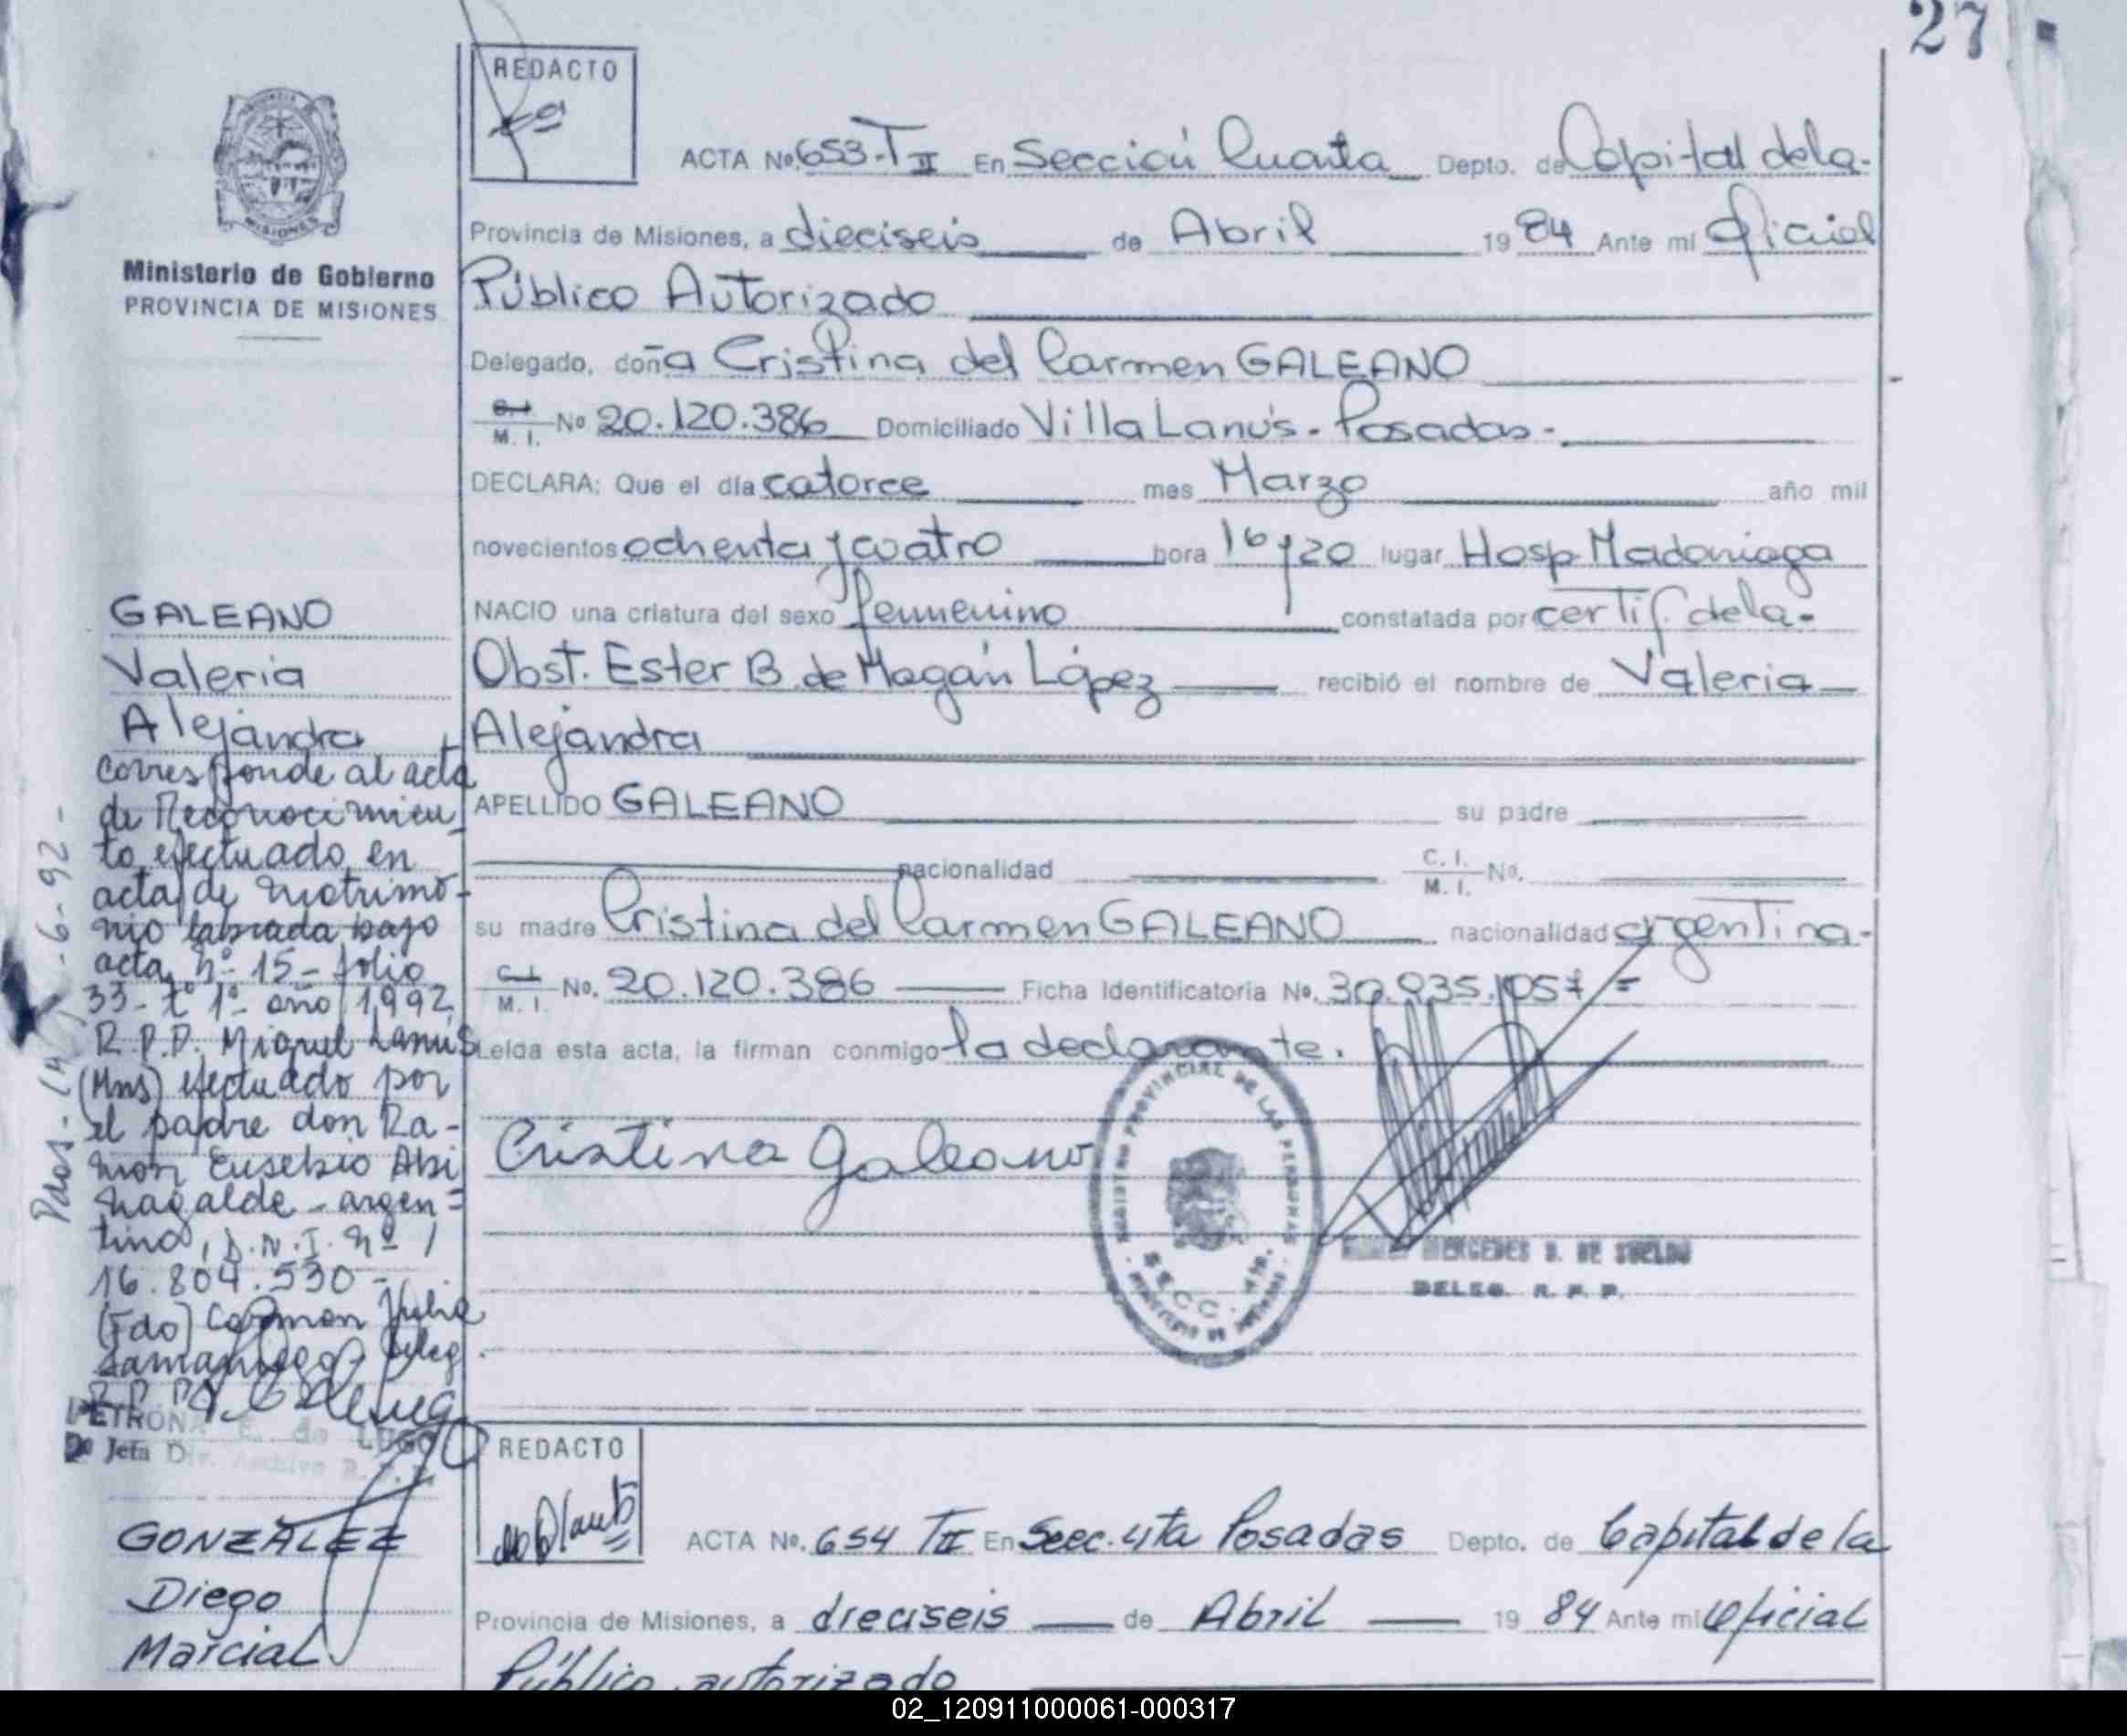 27
REDACTO
ACTA Nº 653-T II En Sección Cuarta Depto. de Capital de la-
Provincia de Misiones, a dieciseis de Abril 19 84 Ante mí Oficial
Público Autorizado
Delegado, doña Cristina del Carmen GALEANO
C.I. M. I. Nº 20.120.386 Domiciliado Villa Lanús - Posadas -
DECLARA: Que el día catorce mes Marzo año mil
novecientos ochenta y cuatro hora 16 y 20 lugar Hosp. Madariaga
NACIO una criatura del sexo femenino constatada por certif. de la-
Obst. Ester B. de Magán López recibió el nombre de Valeria
Alejandra
APELLIDO GALEANO su padre
nacionalidad C. I. M. I. No.
su madre Cristina del Carmen GALEANO nacionalidad argentina-
C.I. M. I. No. 20.120.386 Ficha Identificatoria Nº. 30.935.1057 =
Leída esta acta, la firman conmigo la declarante.
Cristina Galeano
REGISTRO PROVINCIAL DE LAS PERSONAS
SECC. 4ta.
MERCEDES DE SUELDO
DELEG. R. P. P.
PROVINCIA
MISIONES
Ministerio de Gobierno
PROVINCIA DE MISIONES
GALEANO
Valeria
Alejandra
Corresponde al acta
de Reconocimien-
to efectuado en
acta de matrimo-
nio labrada bajo
acta nº 15 - folio
33 - tº 1º - año 1992
R.P.P. Miguel Lanús
(Mns) efectuado por
el padre don Ra-
mon Eusebio Abi
nagalde - argen=
tino, D.N.I. nº
16.804.530 -
(Fdo) Carmen Julia
Samaniego - Deleg.
R.P.P.
Pdas - 6-92 -
PETRONA E. de LUGO
Jefa Div. Archivo R. P. P.
REDACTO
ACTA Nº. 654 TII En Secc. 4ta Posadas Depto. de Capital de la
Provincia de Misiones, a dieciseis de Abril 19 84 Ante mí Oficial
Público autorizado
GONZALEZ
Diego
Marcial
02_120911000061-000317